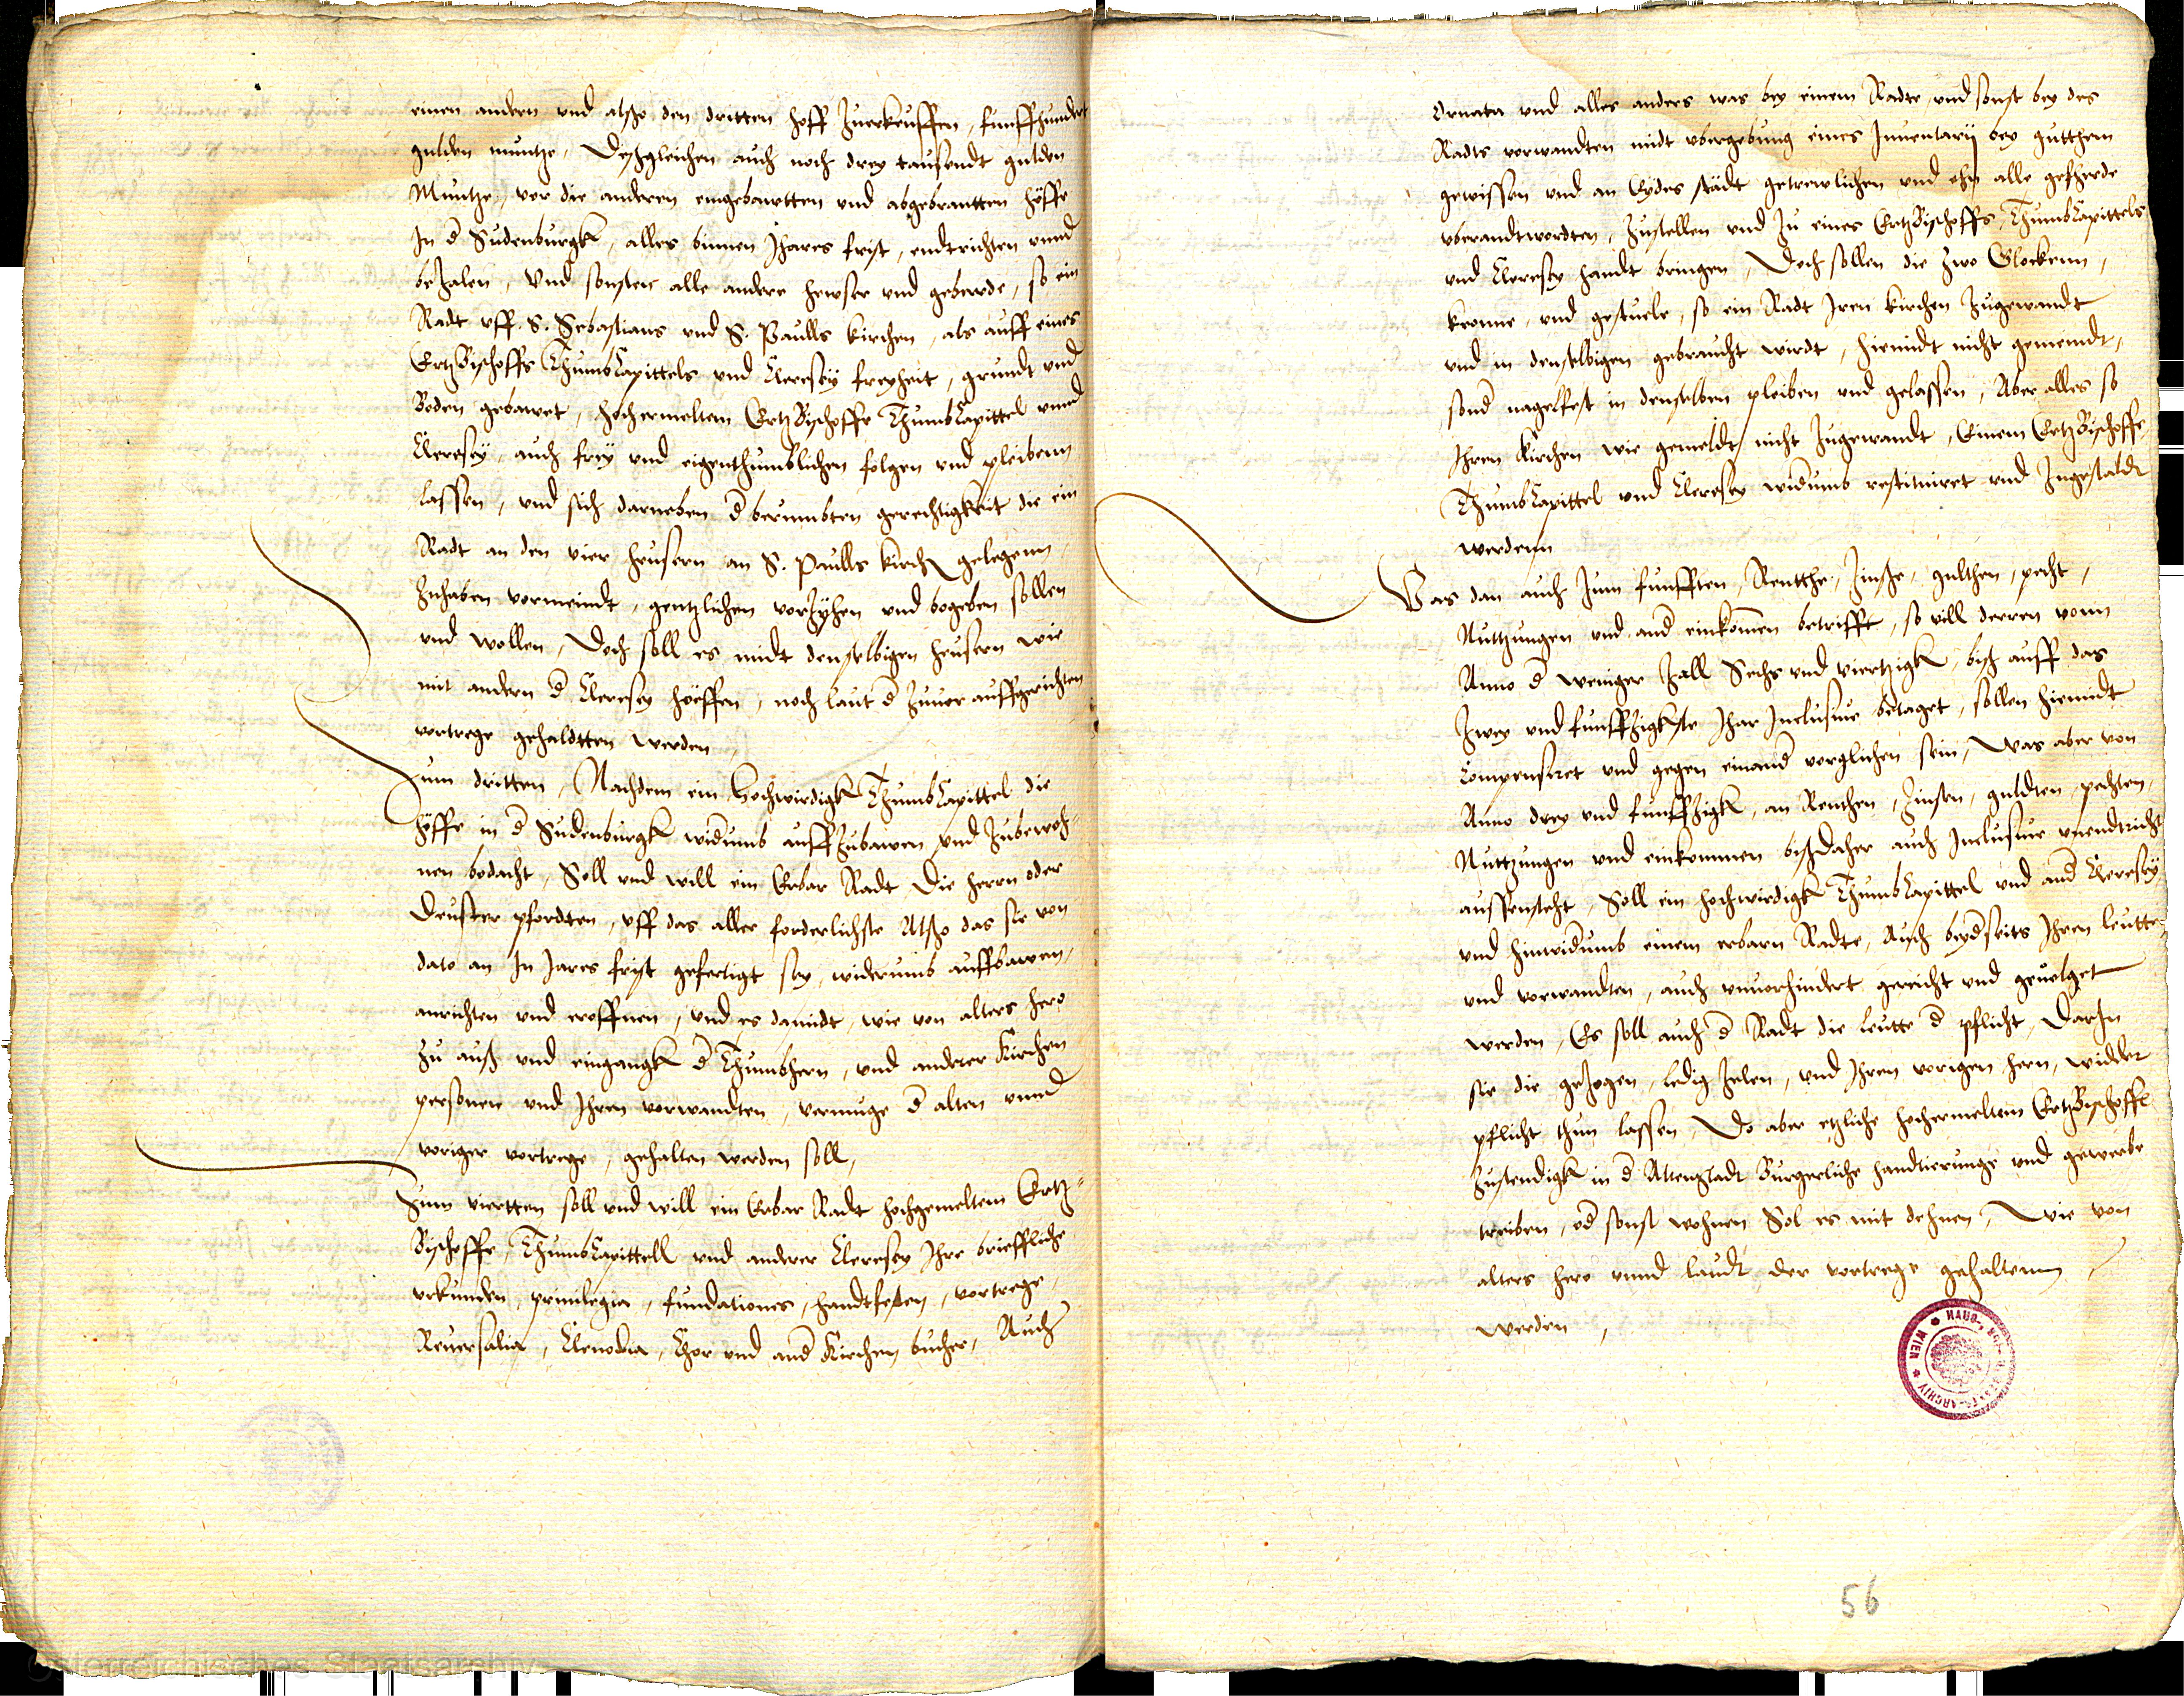 einen andern vnd alßo den dritten hoff Zuerkeuffen, funffhundert
gulden muntze, Deßgleichen auch noch drey tausendt gulden
Muntze, vor die anderen eingebawtten und abgebrantten höffe
In d Sudenburgk, alles binnen Jhares frist, endtrichten vnnd
beZalen, Vnd sonsten alle andere hewser vnd gebewde, so ein
Radt vff S. Sebastians vnd S. Paulls kirchen, als auff eines
ErtzBischoffs ThumbCapittels vnd Cleresey freyheit, grundt vnd
Boden gebawet, hochermeltem ErtzBischoffe ThumbCapittel vnnd
Cleresey, auch frey vnd eigenthumblichen folgen vnd pleibenn
lassen, vnd sich darneben d berumbten gerechtigkeit die ein
Radt an den vier heusern an S. Paulls kirch gelegenn
Zuhaben vormeindt, gentzlichen vorZyhen vnd begeben sollen
vnd wollen, Doch soll es midt denselbigen heusern wie
mit andern d Cleresey höeffen, noch laut d Zuuor auffgerichten
vortrege gehaldtten werden
Zum dritten, Nachdem ein Hochwirdigk ThumbCapittel die
höffe in d Sudenburgk widumb auffZubawen vnd Zubewoh-
nen bedacht, Soll vnd will ein Erbar Radt Die herrn oder
Druster pfordten, vff das aller forderlichste Alßo das sie von
dato an In Jares frist gefertigt sey, widerumb auffbawen,
anrichten vnd eroffnen, vnd es damidt, wie von alters hero
Zu auß vnd eingangk d Thumbhern, vnd anderer Kirchen
personen vnd Ihren vorwandten, vermuge d alten vnnd
voriger vortrege, gehalten werden soll,
Zum viertten soll vnd will ein Erbar Radt hochgemeltem Ertz-
Bischoffe, ThumbCapittell vnd anderer Cleresey Ihre brieffliche
vrkunden, priuilegia, fundationes, handtfesten, vortrege,
Reuersalia, Clenodia, Chor vnd and Kirchen bucher, Auch
Ornata vnd alles anders was bey einem Radte, vnd sonst bey des
Radts vorwandten midt vbergebung eines Inuentarij bey gutthem
gewissen vnd an Eydes städt getrewlichen vnd ohn alle geferde
vberandtwordten, Zustellen vnd Zu eines ErtzBischoffs, ThumbCapittels
vnd Cleresey handt bringen, Doch sollen die Zwo Glockenn,
kronne, vnd gestuele, so ein Radt Iren kirchen Zugewandt
vnd in denselbigen gebraucht wirdt, hiemidt nicht gemeindt,
sond nagelfest in denselben pleiben vnd gelassen, Aber alles so
Ihren Kirchen wie gemeldt, nicht Zugewandt, Einem ErtzBischoffe
ThumbCapittel vnd Cleresey widumb restituiret vnd Zugestaldt
werdenn
Was dan auch Zum funfften, Rentthe, Zinße, gulthen, pecht,
Nuttzungen vnd and einkommen betrifft, so vill derren vonn
Anno d weniger Zall Sechs vnd viertzigk, biß auff das
Zwey vnd funffzigkste Jhar Inclusiue betaget, sollen hiemidt
Compensiret vnd gegen einand vorglichen sein, Was aber von
Anno drey vnd funffzigk, an Renthen, Zinsen, guldten, pechten,
Nuttzungen vnd einkommen bißDaher auch Inclusiue vnendtricht
aussenstehtt, Soll ein hochwirdigk ThumbCapittel vnd and Cleresey
vnd hinwidumb einem erbarn Radte, Auch beydseits Ihren leutten
vnd vorwandten, auch vnuorhindert gereicht vnd geuolget
werden, Es soll auch d Radt die leutte d pflicht, Darin
sie die geZogen, ledig Zelen, vnd Ihren vorigen hern, widder
pflicht thun lassen, Do aber etzliche hochermeltem ErtzBischoffe
Zustendigk in d Altenstadt Burgerliche handtierunge vnd gewerbe
treiben, od sonst wohnen Sol es mit dehnen, wie von
alters hero vnnd laudt der vortrege gehaltenn
werden,
HAUS-, HOF- U. STAATS-ARCHIV WIEN
56
Österreichisches Staatsarchiv